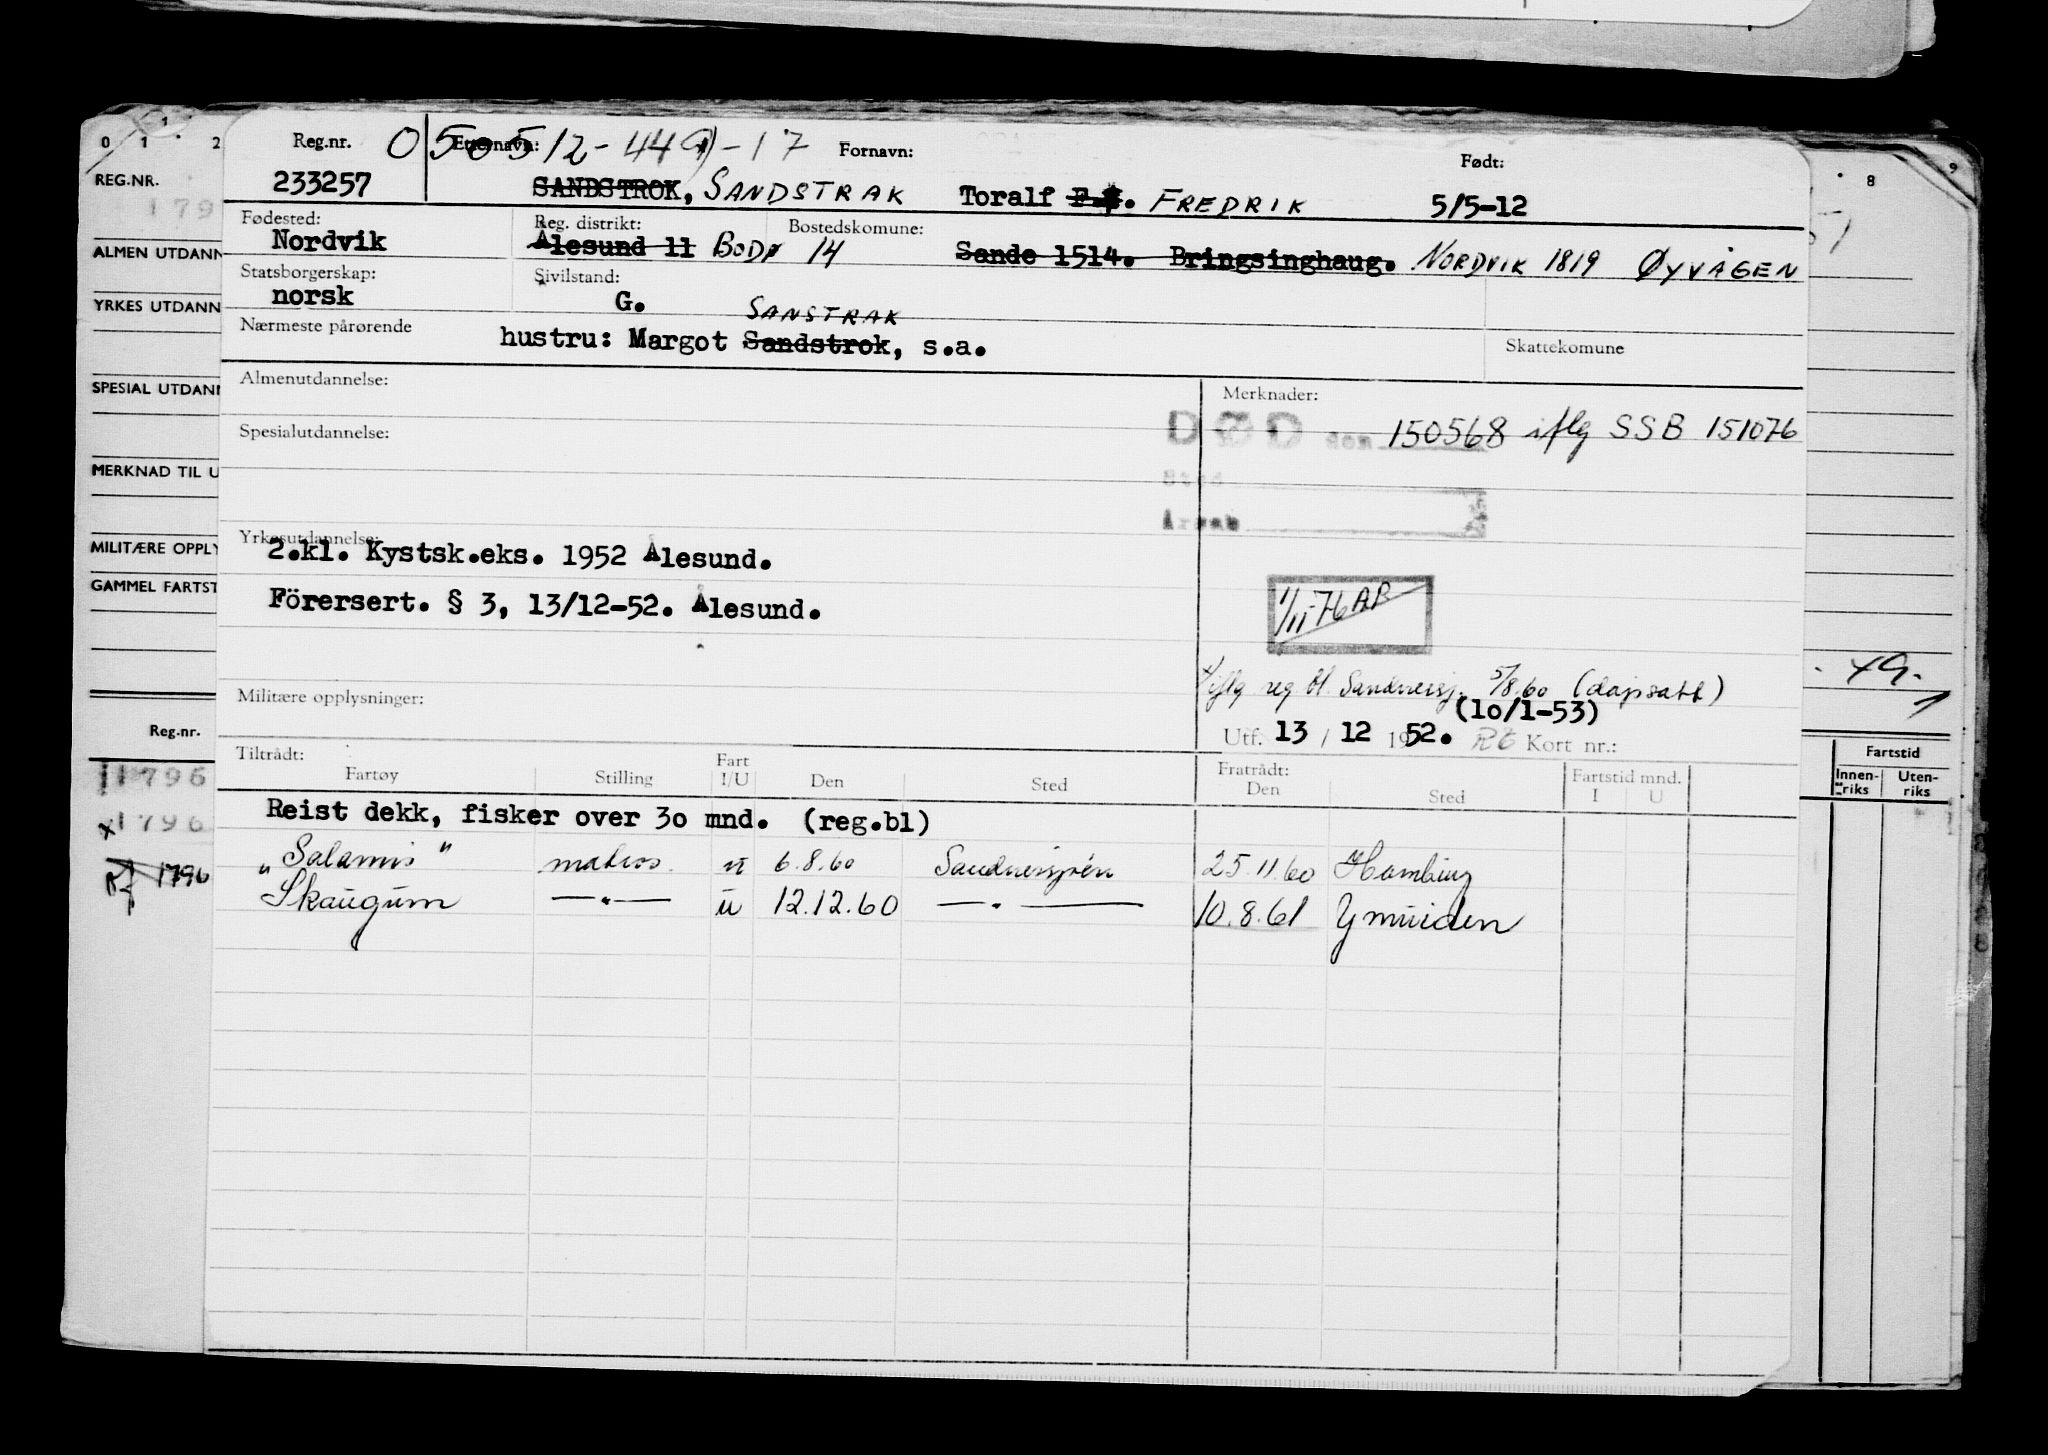 Reg.nr. 050512-449)-17 Etternavn: Fornavn: Født:
233257 SANDSTROK, SANDSTRAK Toralf FREDRIK 5/5-12
Fødested: Reg. distrikt: Bostedskomune:
Nordvik Ålesund 11 BODØ 14 Sande 1514. Bringsinghaug. NORDVIK 1819 ØYVÅGEN
Statsborgerskap: Sivilstand:
norsk G.
SANSTRAK
Nærmeste pårørende hustru: Margot Sandstrok, s.a. Skattekomune
Almenutdannelse: Merknader:
DØD den 150568 iflg SSB 151076
Spesialutdannelse:
Sted
Årsak
Yrkesutdannelse:
2.kl. Kystsk.eks. 1952 Ålesund.
Förersert. § 3, 13/12-52. Ålesund.
1/11-76 AR
x/iflg reg bl. Sandnessj. 5/8.60 (dåpsatt)
Militære opplysninger: (10/1-53)
Utf. 13 / 12 1952. Kort nr.:
Tiltrådt: Fratrådt: Fartstid mnd.
Fartøy Stilling Fart I/U Den Sted Den Sted I U
Reist dekk, fisker over 30 mnd. (reg.bl)
"Salamis" matros. u 6.8.60 Sandnessjøen 25.11.60 Hamburg
Skaugum —"— u 12.12.60 —"— 10.8.61 Ymuiden
0 1 2
REG.NR.
179
ALMEN UTDANN
YRKES UTDANN
SPESIAL UTDANN
MERKNAD TIL U
MILITÆRE OPPLY
GAMMEL FARTST
Reg.nr.
11796
x1796
1796
8 9
49.
Fartstid
Innen-riks Uten-riks